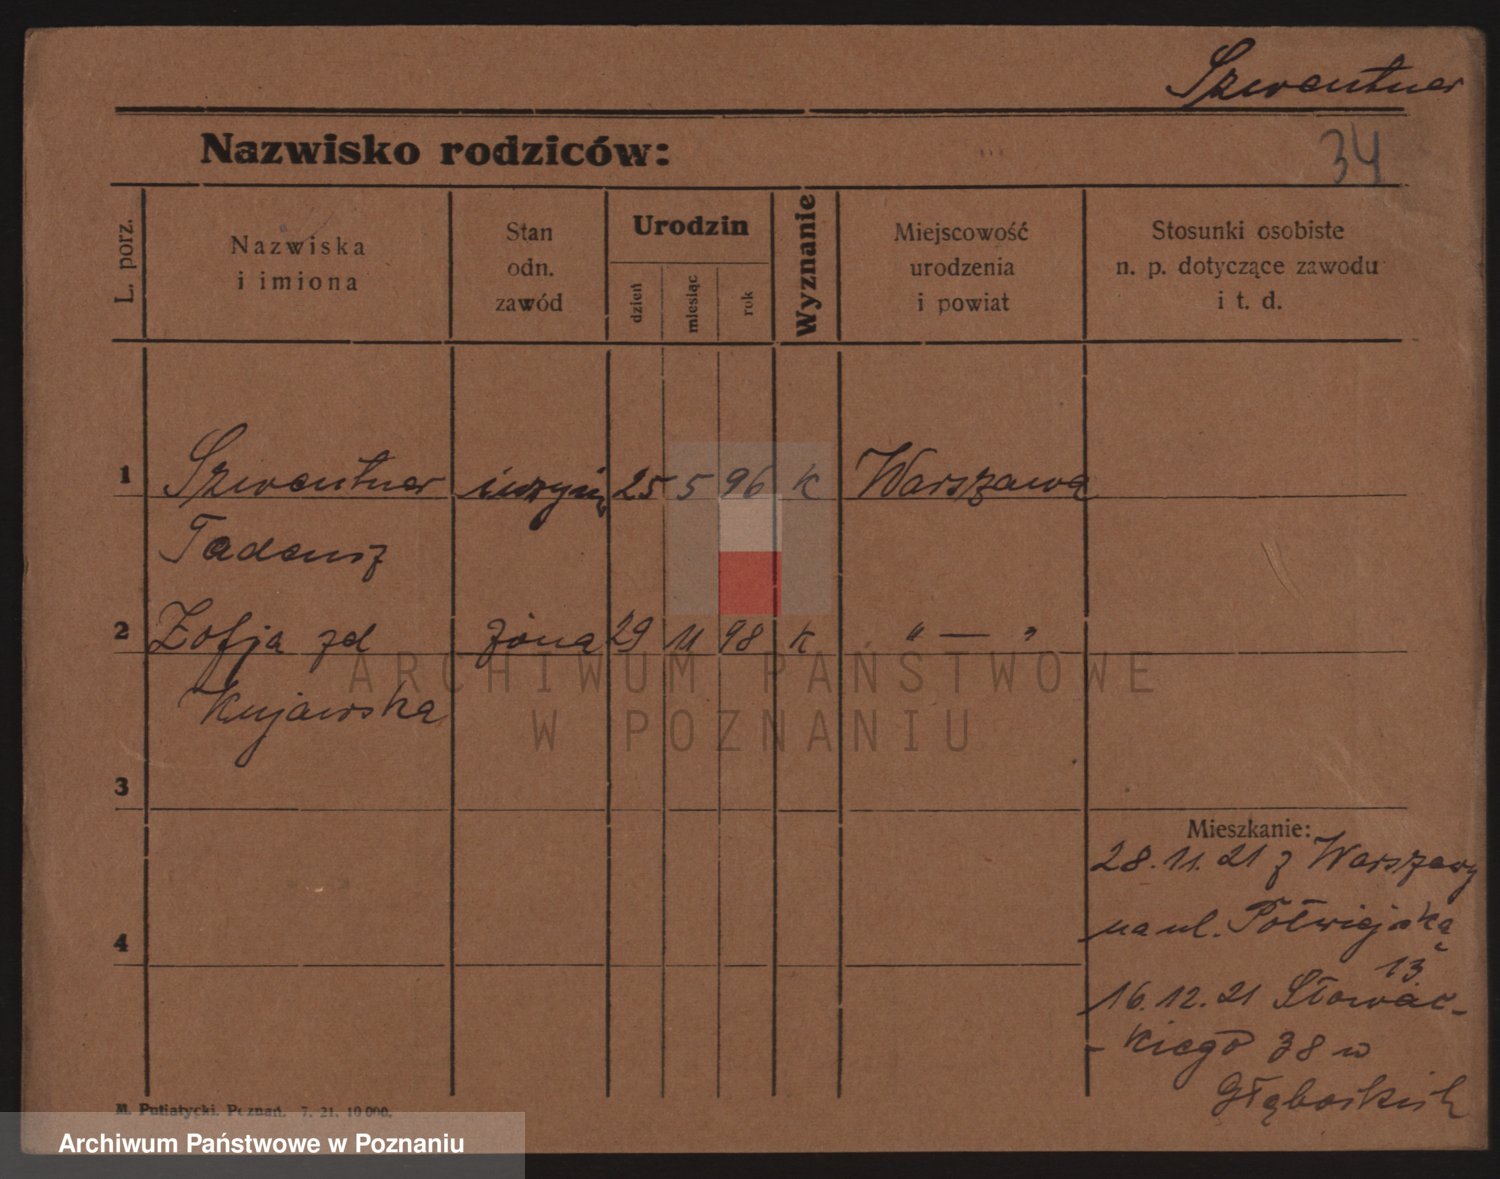 Szwentner
Nazwisko rodziców:
34
L. porz.
Nazwiska
i imiona
Stan
odn.
zawód
Urodzin
dzień
miesiąc
rok
Wyznanie
Miejscowość
urodzenia
i powiat
Stosunki osobiste
n. p. dotyczące zawodu
i t. d.
1 Szwentner 25 5 96 k Warszawa
Tadeusz
2 Zofja zd żona 29 11 98 k " — "
Kujawska
3
4
Mieszkanie:
28.11.21 z Warszawy
na ul. Półwiejską
13
16.12.21 Słowac-
- kiego 38 w
M. Putiatycki, Poznań. 7. 21. 10000.
ARCHIWUM PAŃSTWOWE
W POZNANIU
Archiwum Państwowe w Poznaniu